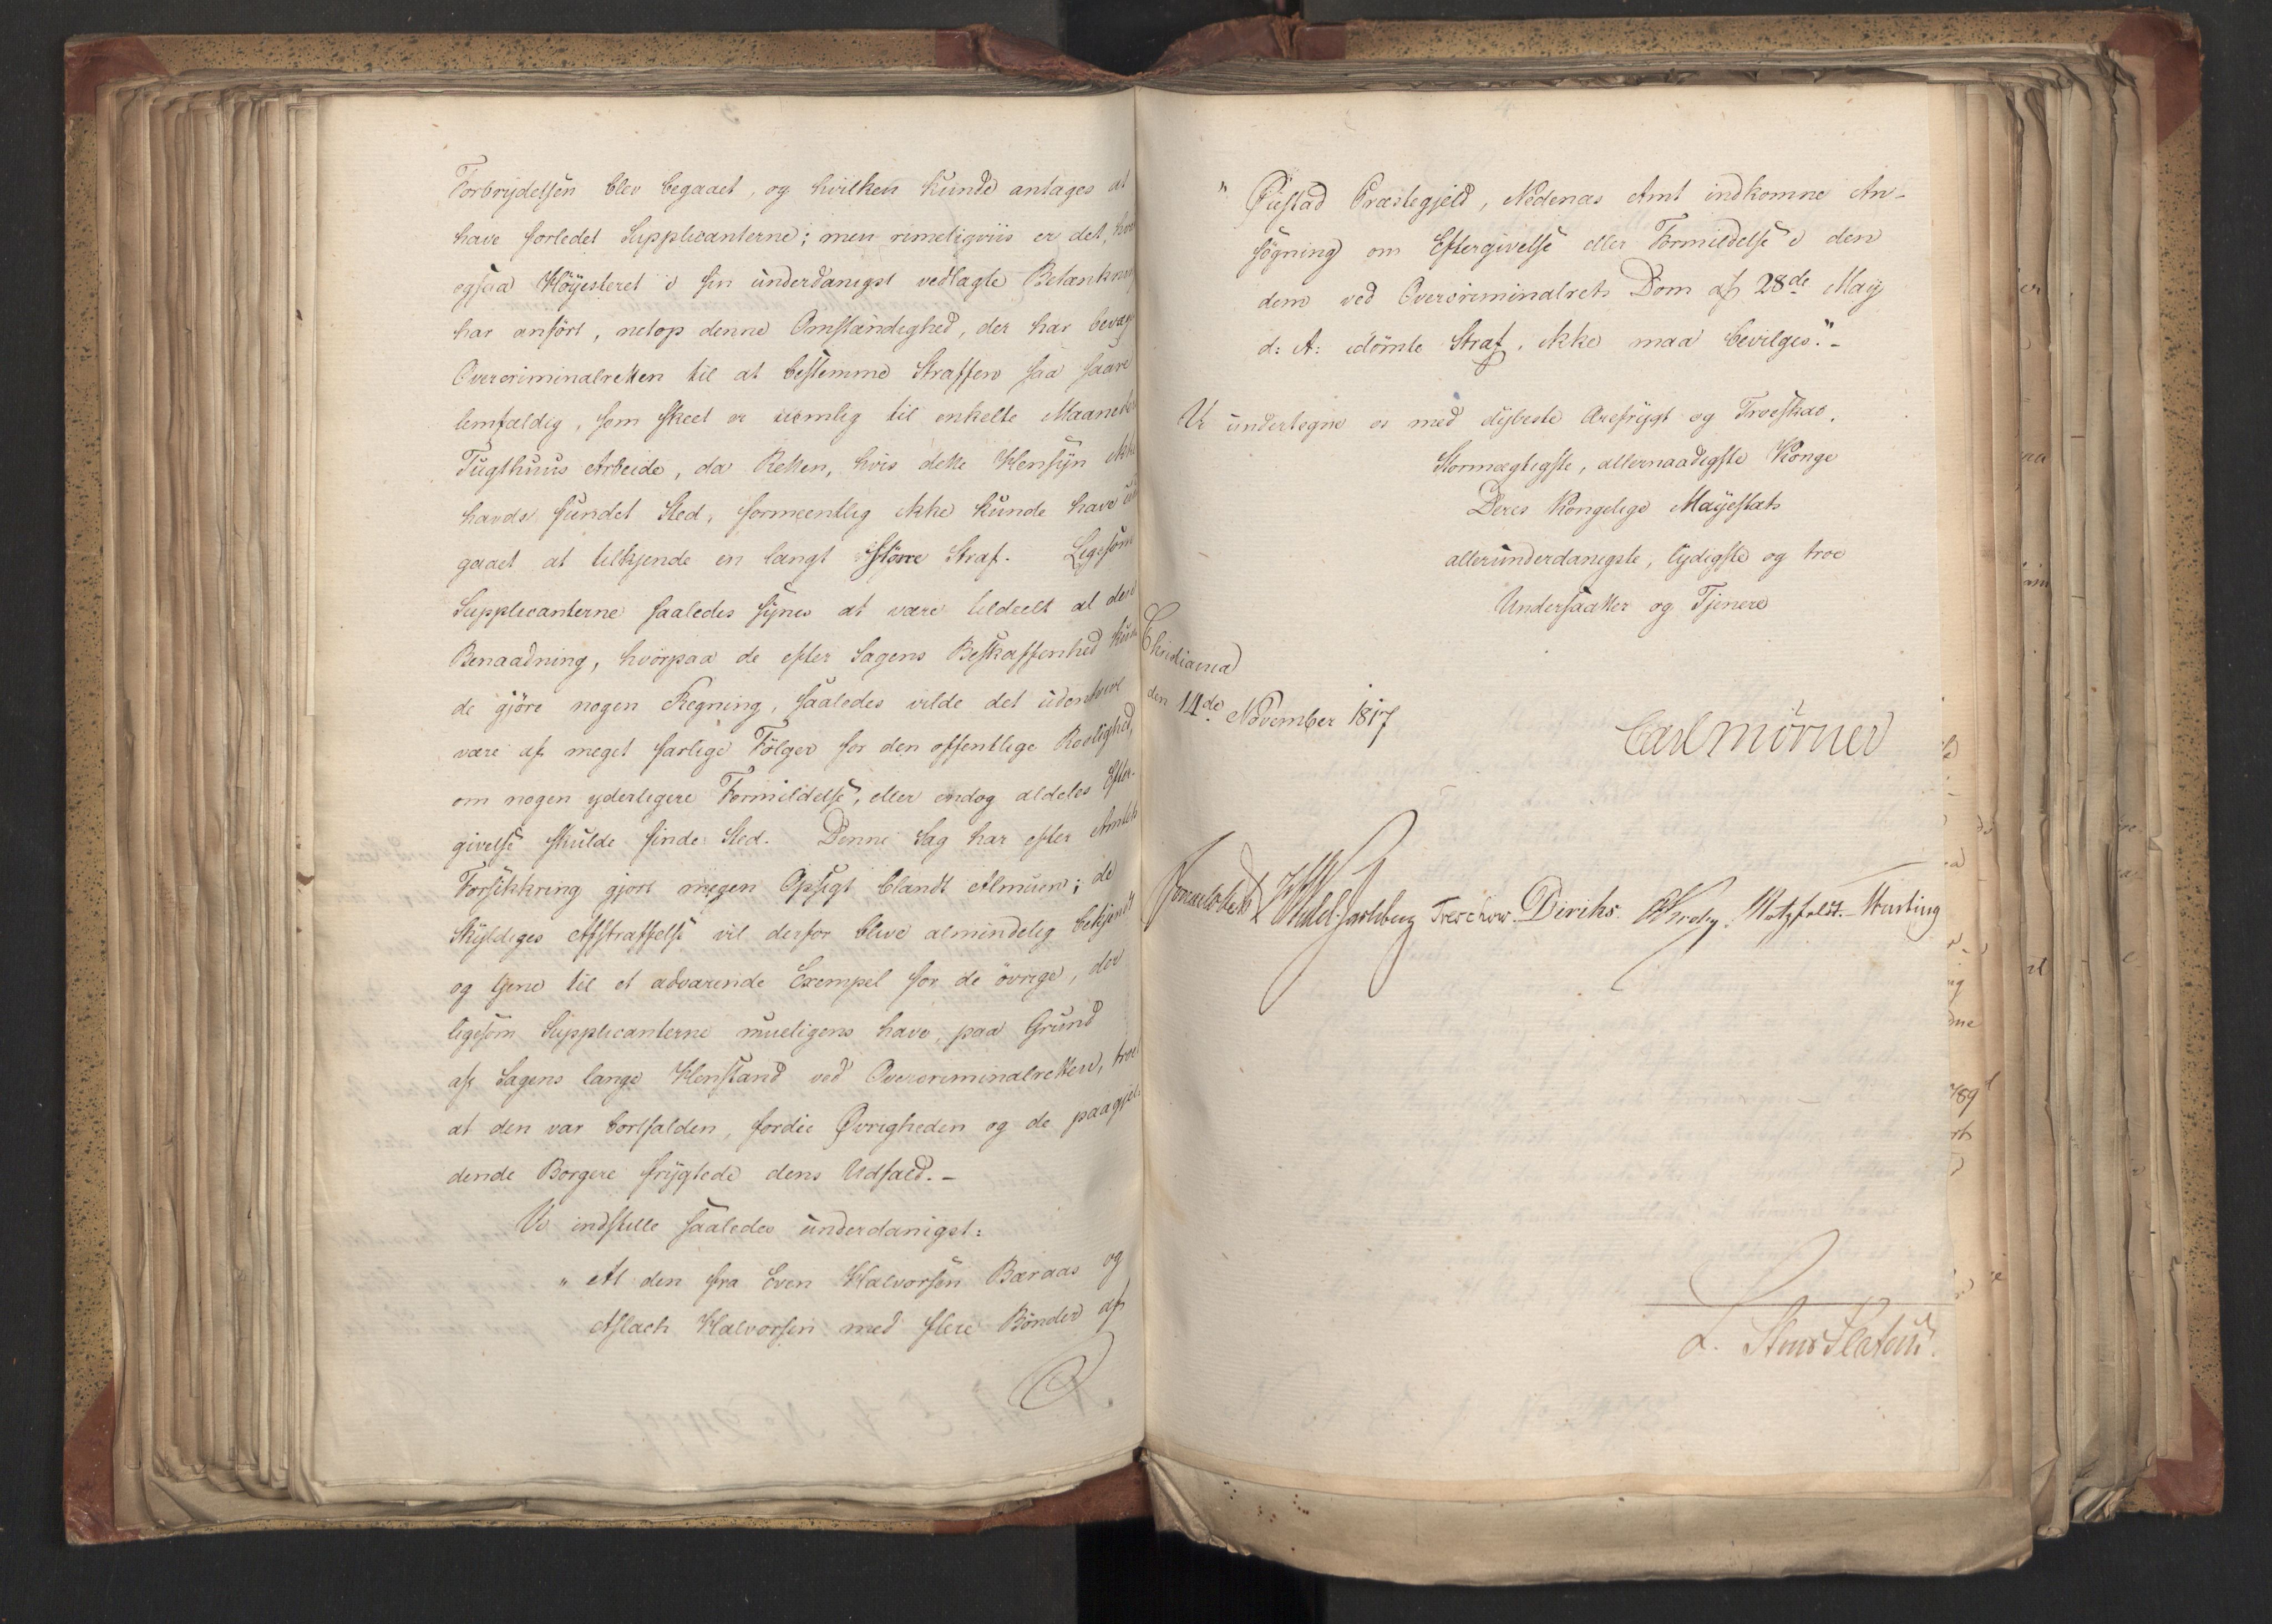 Forbrydelsen blev begaaet, og hvilken kunde antages at
have forledet Supplicanterne; men rimeligviis er det,
ogsaa Höyesteret i sin underdanigst vedlagte
har anfört, netop denne Omstændighed, der har
Overcriminalretten til at bestemme Straffen saa saare
lemfældig, som skeet er nemlig til enkelte
Tugthuus Arbeide, da Retten, hvis dette Hensyn
havde fundet Sted, formeentlig ikke kunde have
gaaet at tilkjende en langt större Straf. Ligesom
Supplicanterne saaledes synes at være tildeelt al den
Benaadning, hvorpaa de efter Sagens Beskaffenhed
de gjöre nogen Regning, saaledes vilde det udentvivl
være af meget farlige Fölger for den offentlige Roelighed,
om nogen yderligere Formildelse, eller endog aldeles Efter-
givelse skulde finde Sted. Denne Sag har efter Amtets
Forsikkring gjort megen Opsigt blandt Almuen; de
Skyldiges Afstraffelse vil derfor blive almindelig bekjendt
og tjene til et advarende Exempel for de övrige, der
ligesom Supplicanterne mueligens have, paa Grund
af Sagens lange Henstand ved Overcriminalretten, troet
at den var bortfalden, fordie Øvrigheden og de paagjel-
dende Borgere frygtede dens Udfald.-
Vi indstille saaledes underdanigst:
" At den fra Even Halvorsen Baraas og
Aslach Halvorsen med flere Bönder af
" Øiestad Præstegjeld, Nedenæs Amt indkomne An-
sögning om Eftergivelse eller Formildelse i den
dem ved Overcriminalrets Dom af 28de May
d: A: idömte Straf, ikke maa bevilges."-
Vi undertegne os med dybeste Ærefrygt og Troeskab.
Stormægtigste, allernaadigste Konge
Deres Kongelige Mayestæts
allerunderdanigste, lydigste og troe
Undersaatter og Tjenere
Christiania
den 14de November 1817
Carl Mörner
Sommerhielm Wedel Jarlsberg Treschow. Diriks. Krohg. Motzfeldt. Hertzberg
L. Stoud Platou.